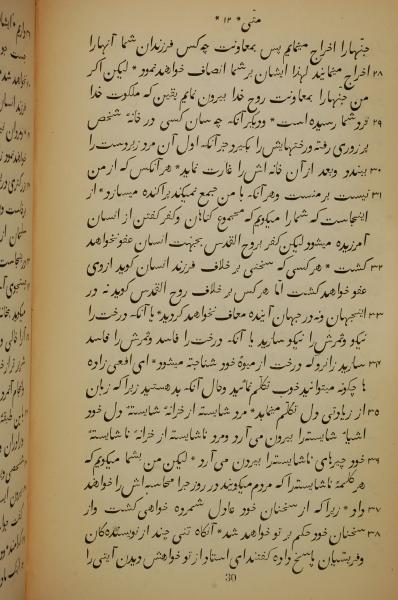 متی * ۱۲ *
جنهارا اخراج مینمایم پس بمعاونت چه کس فرزندان شما آنهارا
۲۸ اخراج مینمایند لهذا ایشان بر شما انصاف خواهند نمود * لیکن اگر
من جنهارا بمعاونت روح خدا بیرون نمایم یقین که ملکوت خدا
۲۹ نزد شما رسیده است * و دیگر آنکه چه سان کسی در خانهٔ شخص
پر زوری رفته و رختهایش را بگیرد جز آنکه اول آن مرد زبردست را
۳۰ ببندد و بعد از آن خانه اش را غارت نماید * هر آنکس که از من
۳۱ نیست بر منست و هر آنکه با من جمع نمیکند پراکنده میسازد * از
اینجاست که شمارا میگویم که مجموع گناهان و کفر گفتن از انسان
آمرزیده میشود لیکن کفر بروح القدس بجهت انسان عفو نخواهد
۳۲ گشت * هر کسی که سخنی بر خلاف فرزند انسان گوید از وی
عفو خواهد گشت اما هر کس بر خلاف روح القدس گوید نه در
۳۳ اینجهان و نه در جهان آینده معاف نخواهد گردید * یا آنکه درخت را
نیکو و ثمرش را نیکو سازید یا آنکه درخت را فاسد و ثمرش را فاسد
۳۴ سازید زانرو که درخت از میوهٔ خود شناخته میشود * ای افعی زاده
ها چگونه میتوانید خوب تکلم نمائید و حال آنکه بد هستید زیرا که زبان
۳۵ از زیادتی دل تکلم مینماید * مرد شایسته از خزانهٔ شایستهٔ دل خود
اشیاء شایسته را بیرون می آرد و مرد ناشایسته از خزانهٔ ناشایستهٔ
۳۶ خود چیزهای ناشایسته را بیرون می آرد * لیکن من بشما میگویم که
هر کلمهٔ ناشایسته را که مردم میگویند در روز جزا محاسبه اش را خواهند
۳۷ داد * زیرا که از سخنان خود عادل شمرده خواهی گشت و از
۳۸ سخنان خود حکم بر تو خواهد شد * آنگاه تنی چند از نویسندگان
و فریسیان پاسخ داده گفتند ای استاد از تو خواهش دیدن آیتی را
30